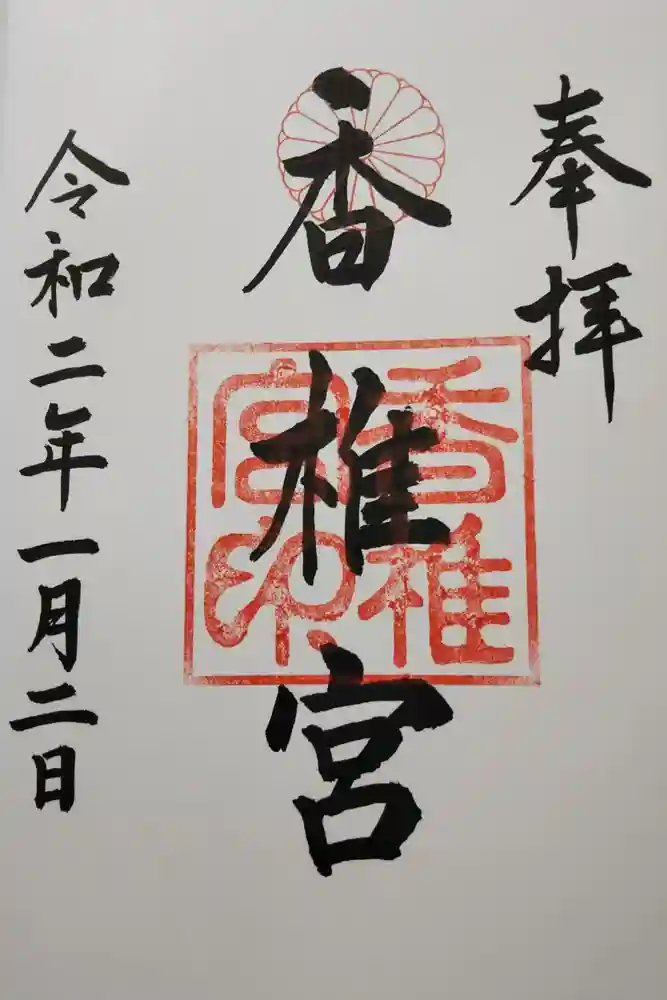 奉拝
香椎宮
香椎宮印
令和二年一月二日